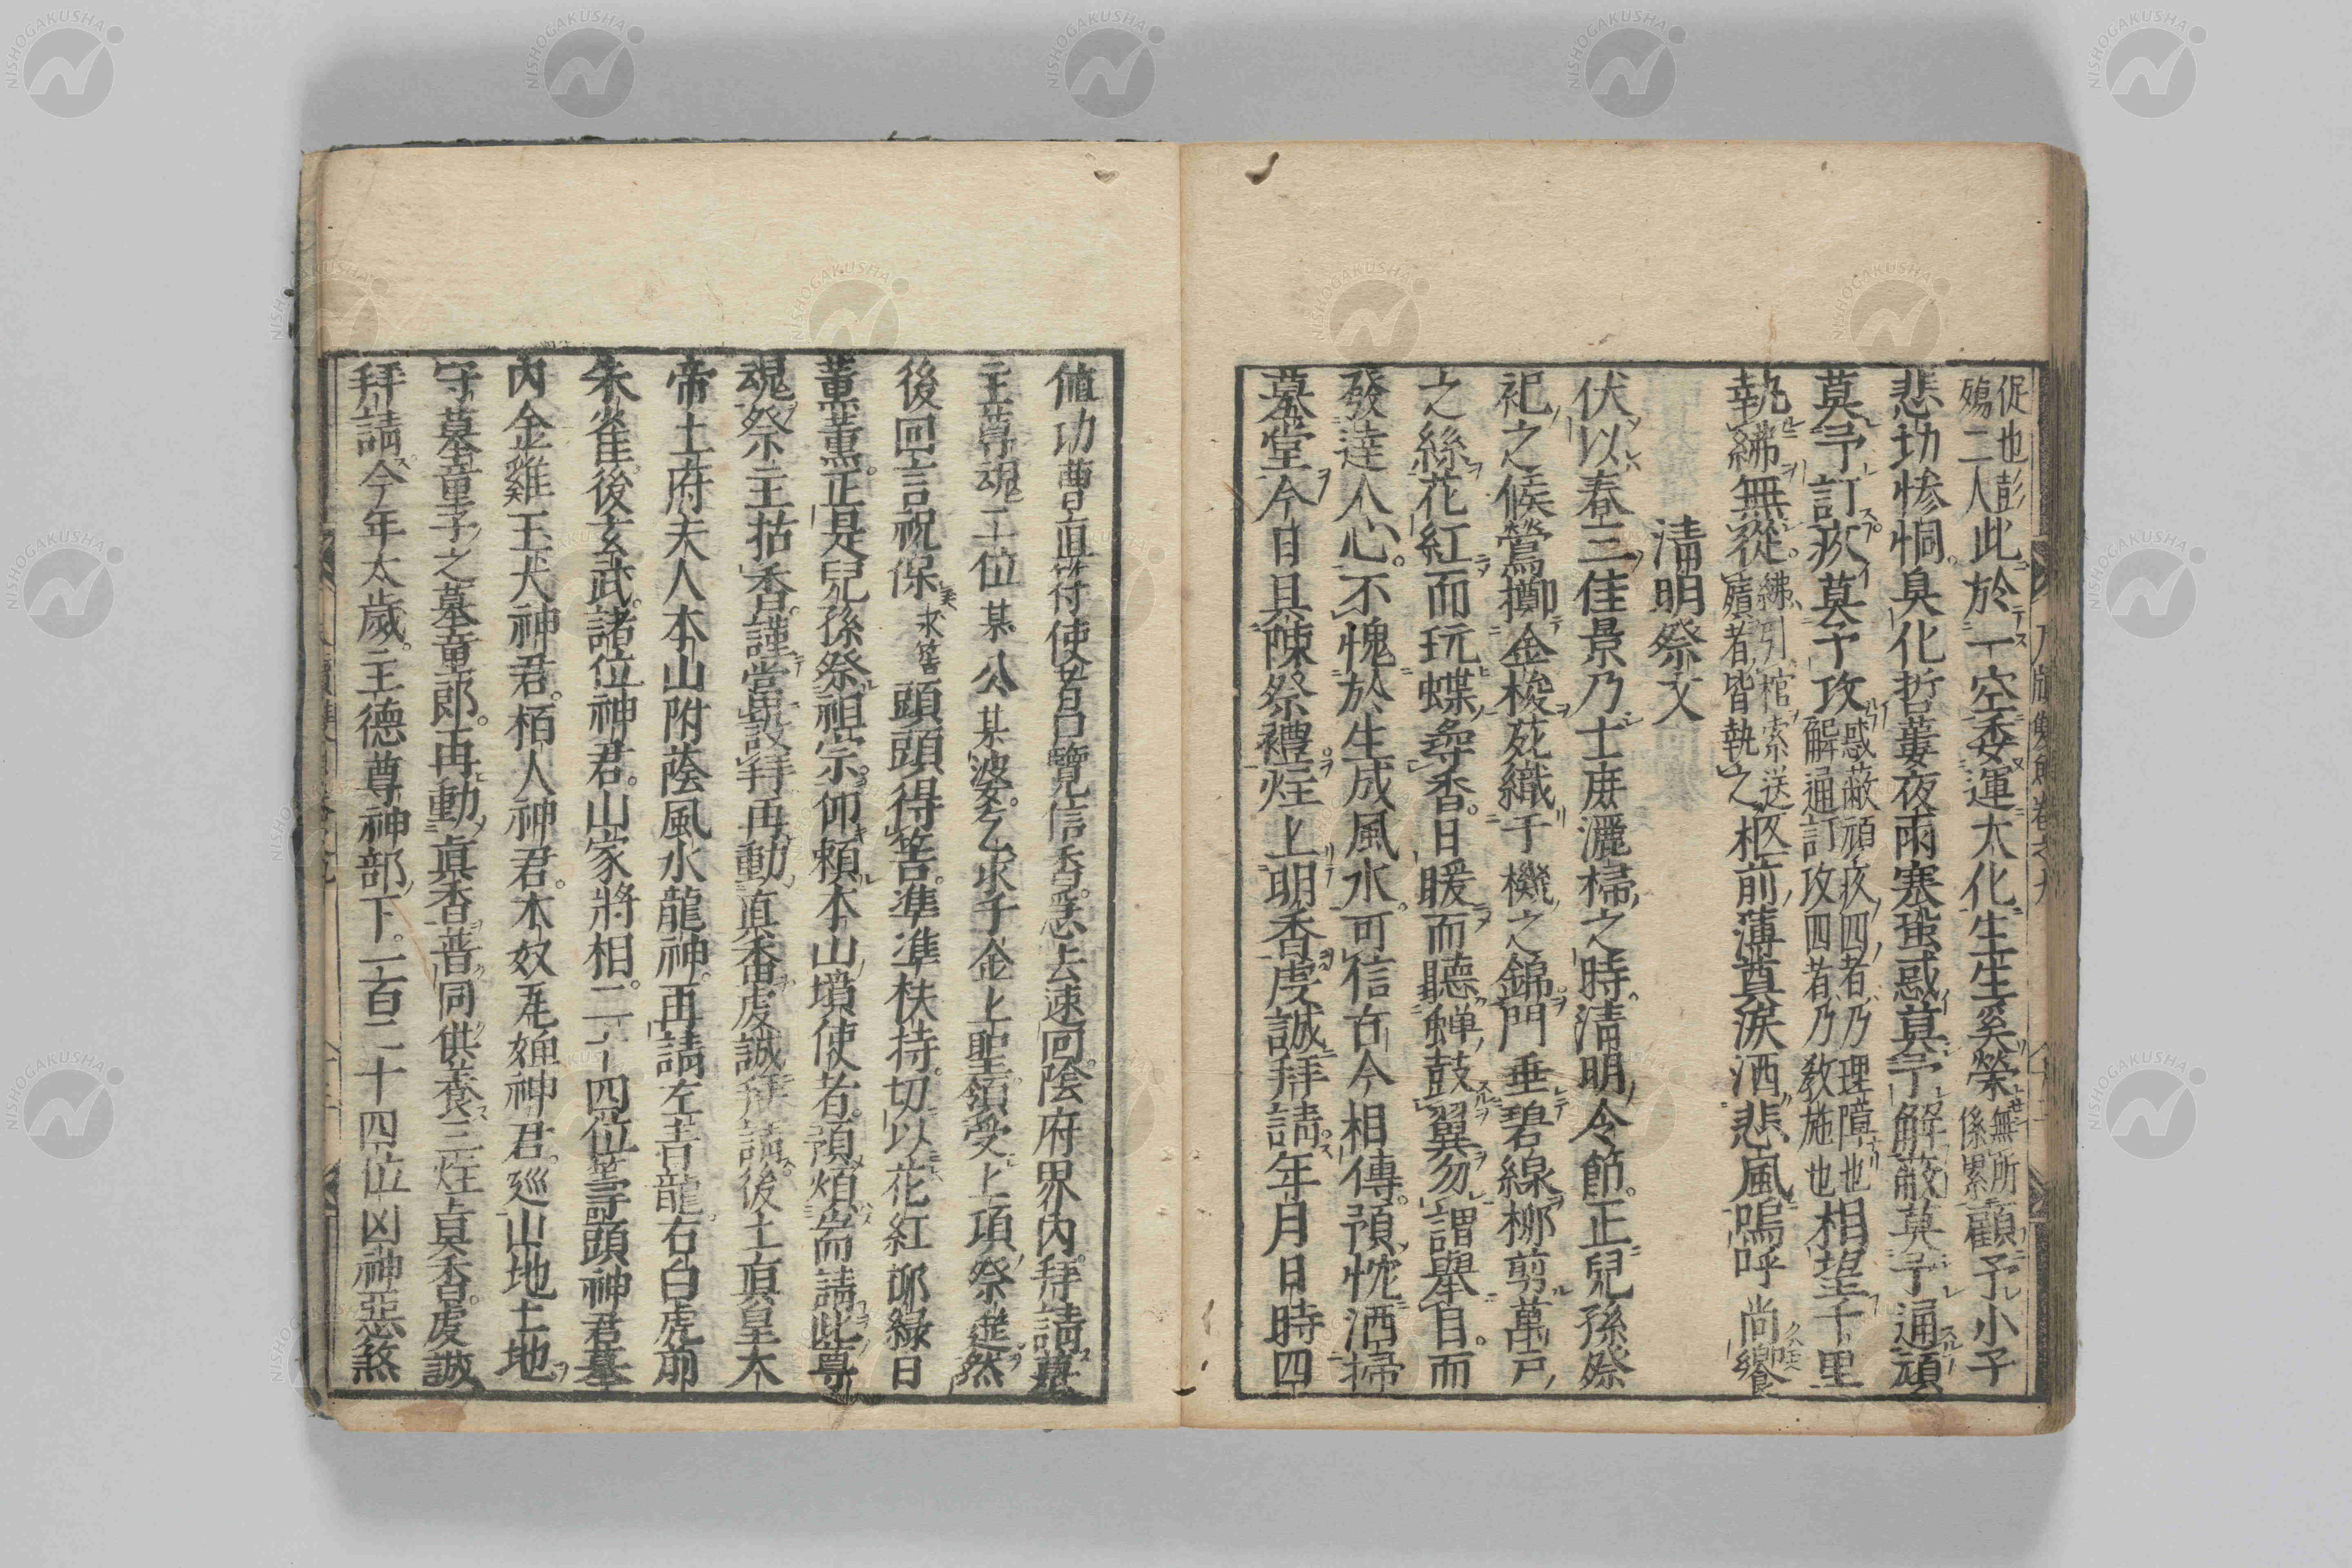 促也彭殤二人此於一空委運太化生生奚榮無所係累顧予小子
悲切慘恫臭化哲萋夜雨寒蛩惑莫予解蔽莫予通頑
莫予訂疚莫予攻惑蔽頑疚四者乃理障也解通訂攻四者乃教施也相望千里
執紼無從紼引棺索送殯者皆執之柩前薄奠淚洒悲風嗚呼尚饗
清明祭文
伏以春三佳景乃士庶灑掃之時清明令節正兒孫祭
祀之候鶯擲金梭苑織千機之錦門垂碧線柳剪萬戸
之絲花紅而玩蝶尋香日暖而聽蝉鼓翼勿謂舉目而
發達人心不愧於生成風水可信古今相傳預忱洒掃
墓堂今日具陳祭禮炷上明香虔誠拜請年月日時四
値功曹直符使者日覽信香急去速回陰府界内拜請墓
主尊魂二位某公某婆乞求千金上聖領受上項祭筵然
後回言祝保求筶頭頭得筶準準扶持切以花紅柳緑日
薫薫正是兒孫祭祖宗仰頼本山墳使者預煩耑請此尊
魂祭主拈香謹當設拜再動真香虔誠拜請後土真皇大
帝土府夫人本山附蔭風水龍神再請左青龍右白虎前
朱雀後玄武諸位神君山家將相二十四位筭頭神君墓
内金雞玉犬神君栢人神君木奴神君巡山地土地
守墓童子之墓童郎再動真香普同供養三炷真香虔誠
拜請今年太歳主德尊神部下一百二十四位凶神惡煞
NISHOGAKUSHA